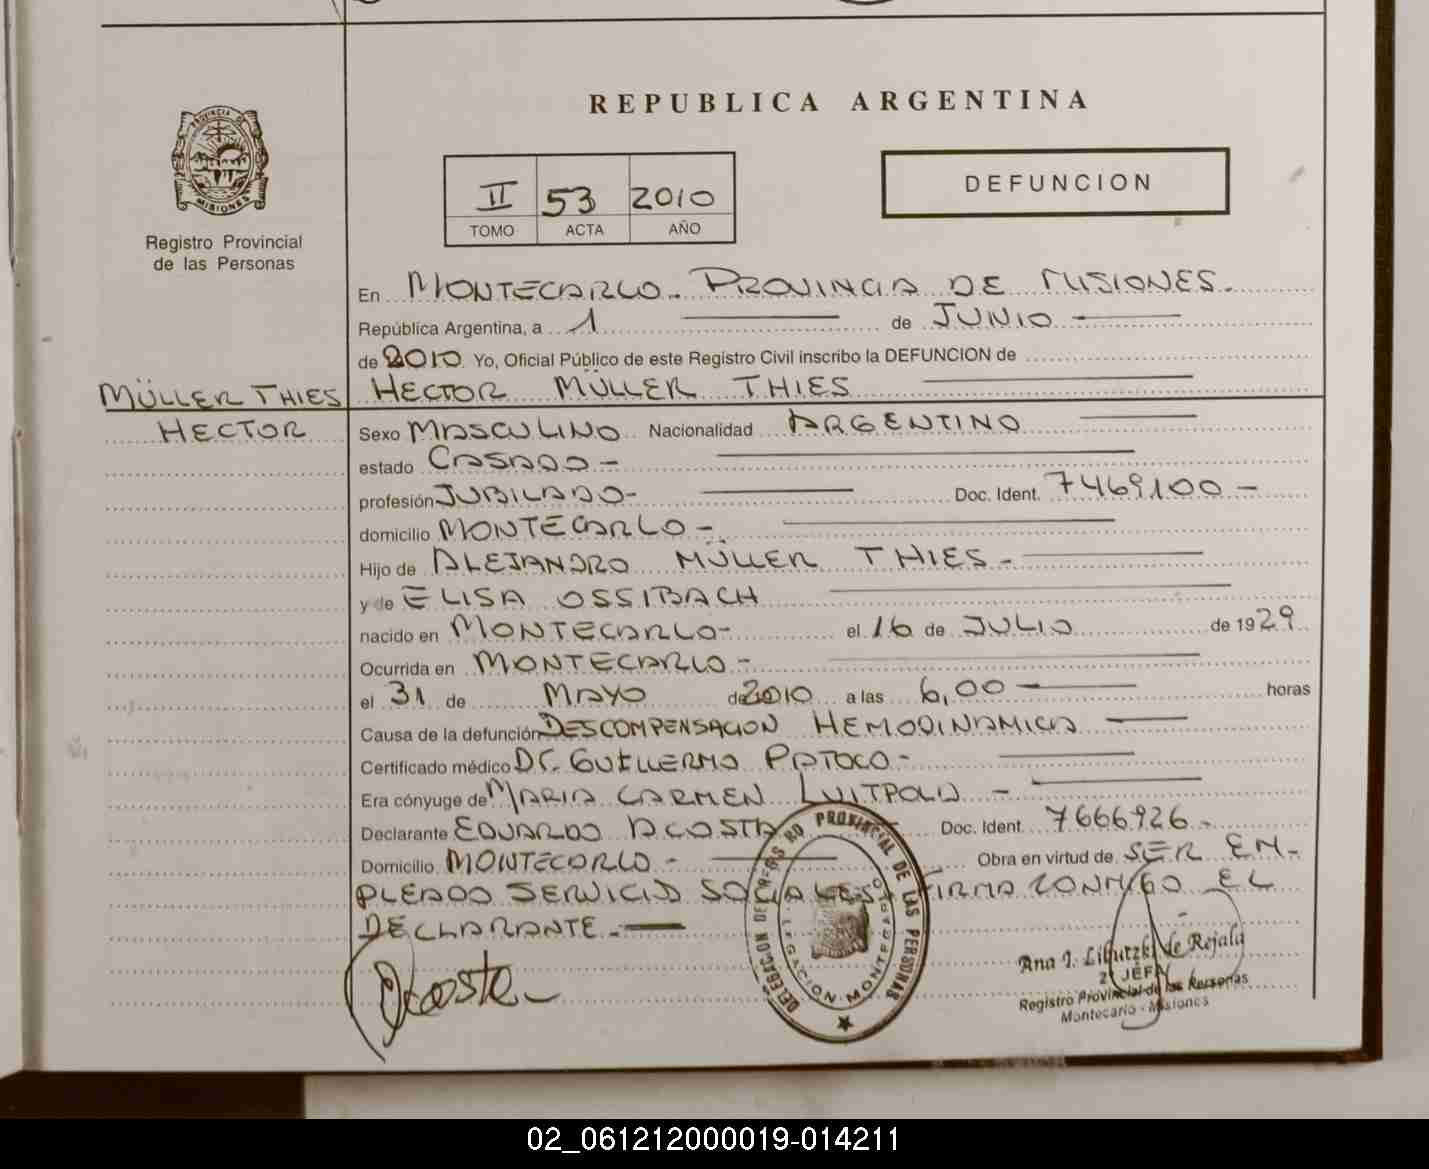 REPUBLICA ARGENTINA
PROVINCIA DE
MISIONES
Registro Provincial
de las Personas
II 53 2010
TOMO ACTA AÑO
DEFUNCION
En MONTECARLO. PROVINCIA DE MISIONES.
República Argentina, a 1 de JUNIO
de 2010 Yo, Oficial Público de este Registro Civil inscribo la DEFUNCION de
MÜLLER THIES
HECTOR
HECTOR MÜLLER THIES
Sexo MASCULINO Nacionalidad ARGENTINO
estado CASADO-
profesión JUBILADO- Doc. Ident. 7469100-
domicilio MONTECARLO-
Hijo de ALEJANDRO MÜLLER THIES-
y de ELISA OSSIBACH
nacido en MONTECARLO- el 16 de JULIO de 1929
Ocurrida en MONTECARLO-
el 31 de MAYO de 2010 a las 6,00 horas
Causa de la defunción DESCOMPENSACION HEMODINAMICA
Certificado médico Dr. GUILLERMO PATOCO-
Era cónyuge de MARIA CARMEN LUITPOLD-
Declarante EDUARDO ACOSTA Doc. Ident. 7666926-
Domicilio MONTECARLO- Obra en virtud de SER EM-
PLEADO SERVICIOS SOCIALES. FIRMA CONMIGO EL
DECLARANTE.-
Acosta
DELEGACION DEL REGISTRO PROVINCIAL DE LAS PERSONAS
DELEGACION MONTECARLO
Ana I. Libutzki de Rejala
2° JEFA
Registro Provincial de las Personas
Montecarlo - Misiones
02_061212000019-014211